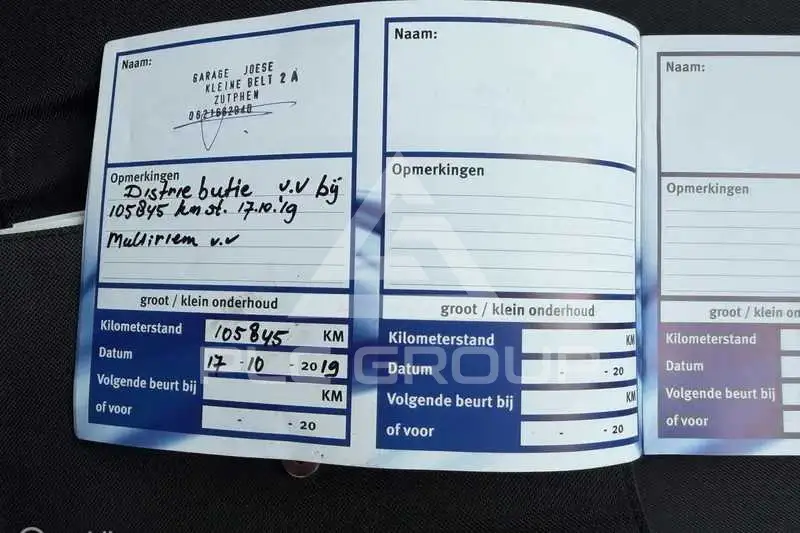 Naam:
GARAGE JOESE
KLEINE BELT 2 A
ZUTPHEN
0621662840
Opmerkingen
Distributie v.v bij
105845 km st. 17.10.19
Multiriem v.v
groot / klein onderhoud
Kilometerstand 105845 KM
Datum 17 - 10 - 2019
Volgende beurt bij KM
of voor - - 20
Naam:
Opmerkingen
groot / klein onderhoud
Kilometerstand KM
Datum - - 20
Volgende beurt bij KM
of voor - - 20
Naam:
Opmerkingen
groot / klein on
Kilometerstand
Datum
Volgende beurt bij
of voor
RLC GROUP